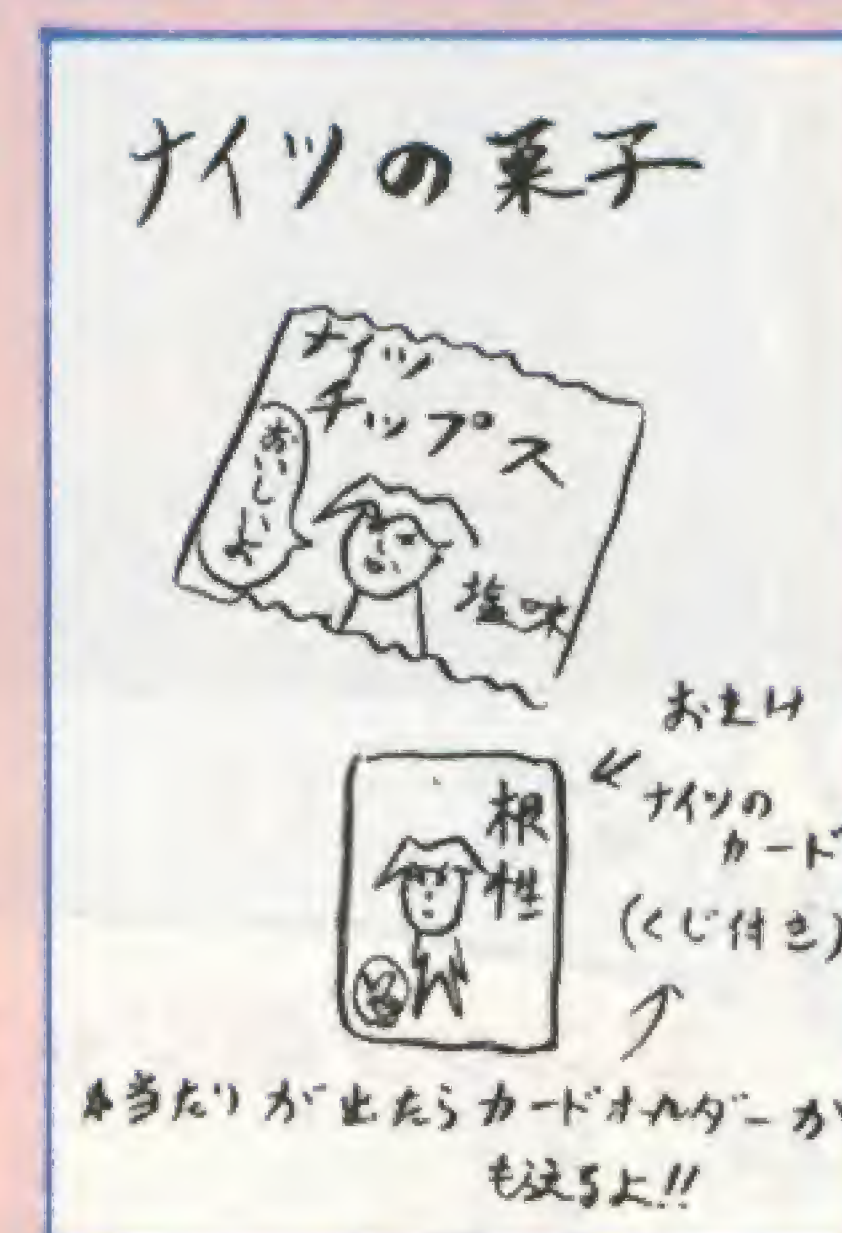 ナイツの菓子
ナイツ
チップス
おいしいよ
塩味
おまけ
ナイツの
カード
(くじ付き)
根性
当たりが出たらカードホルダーが
もらえるよ!!